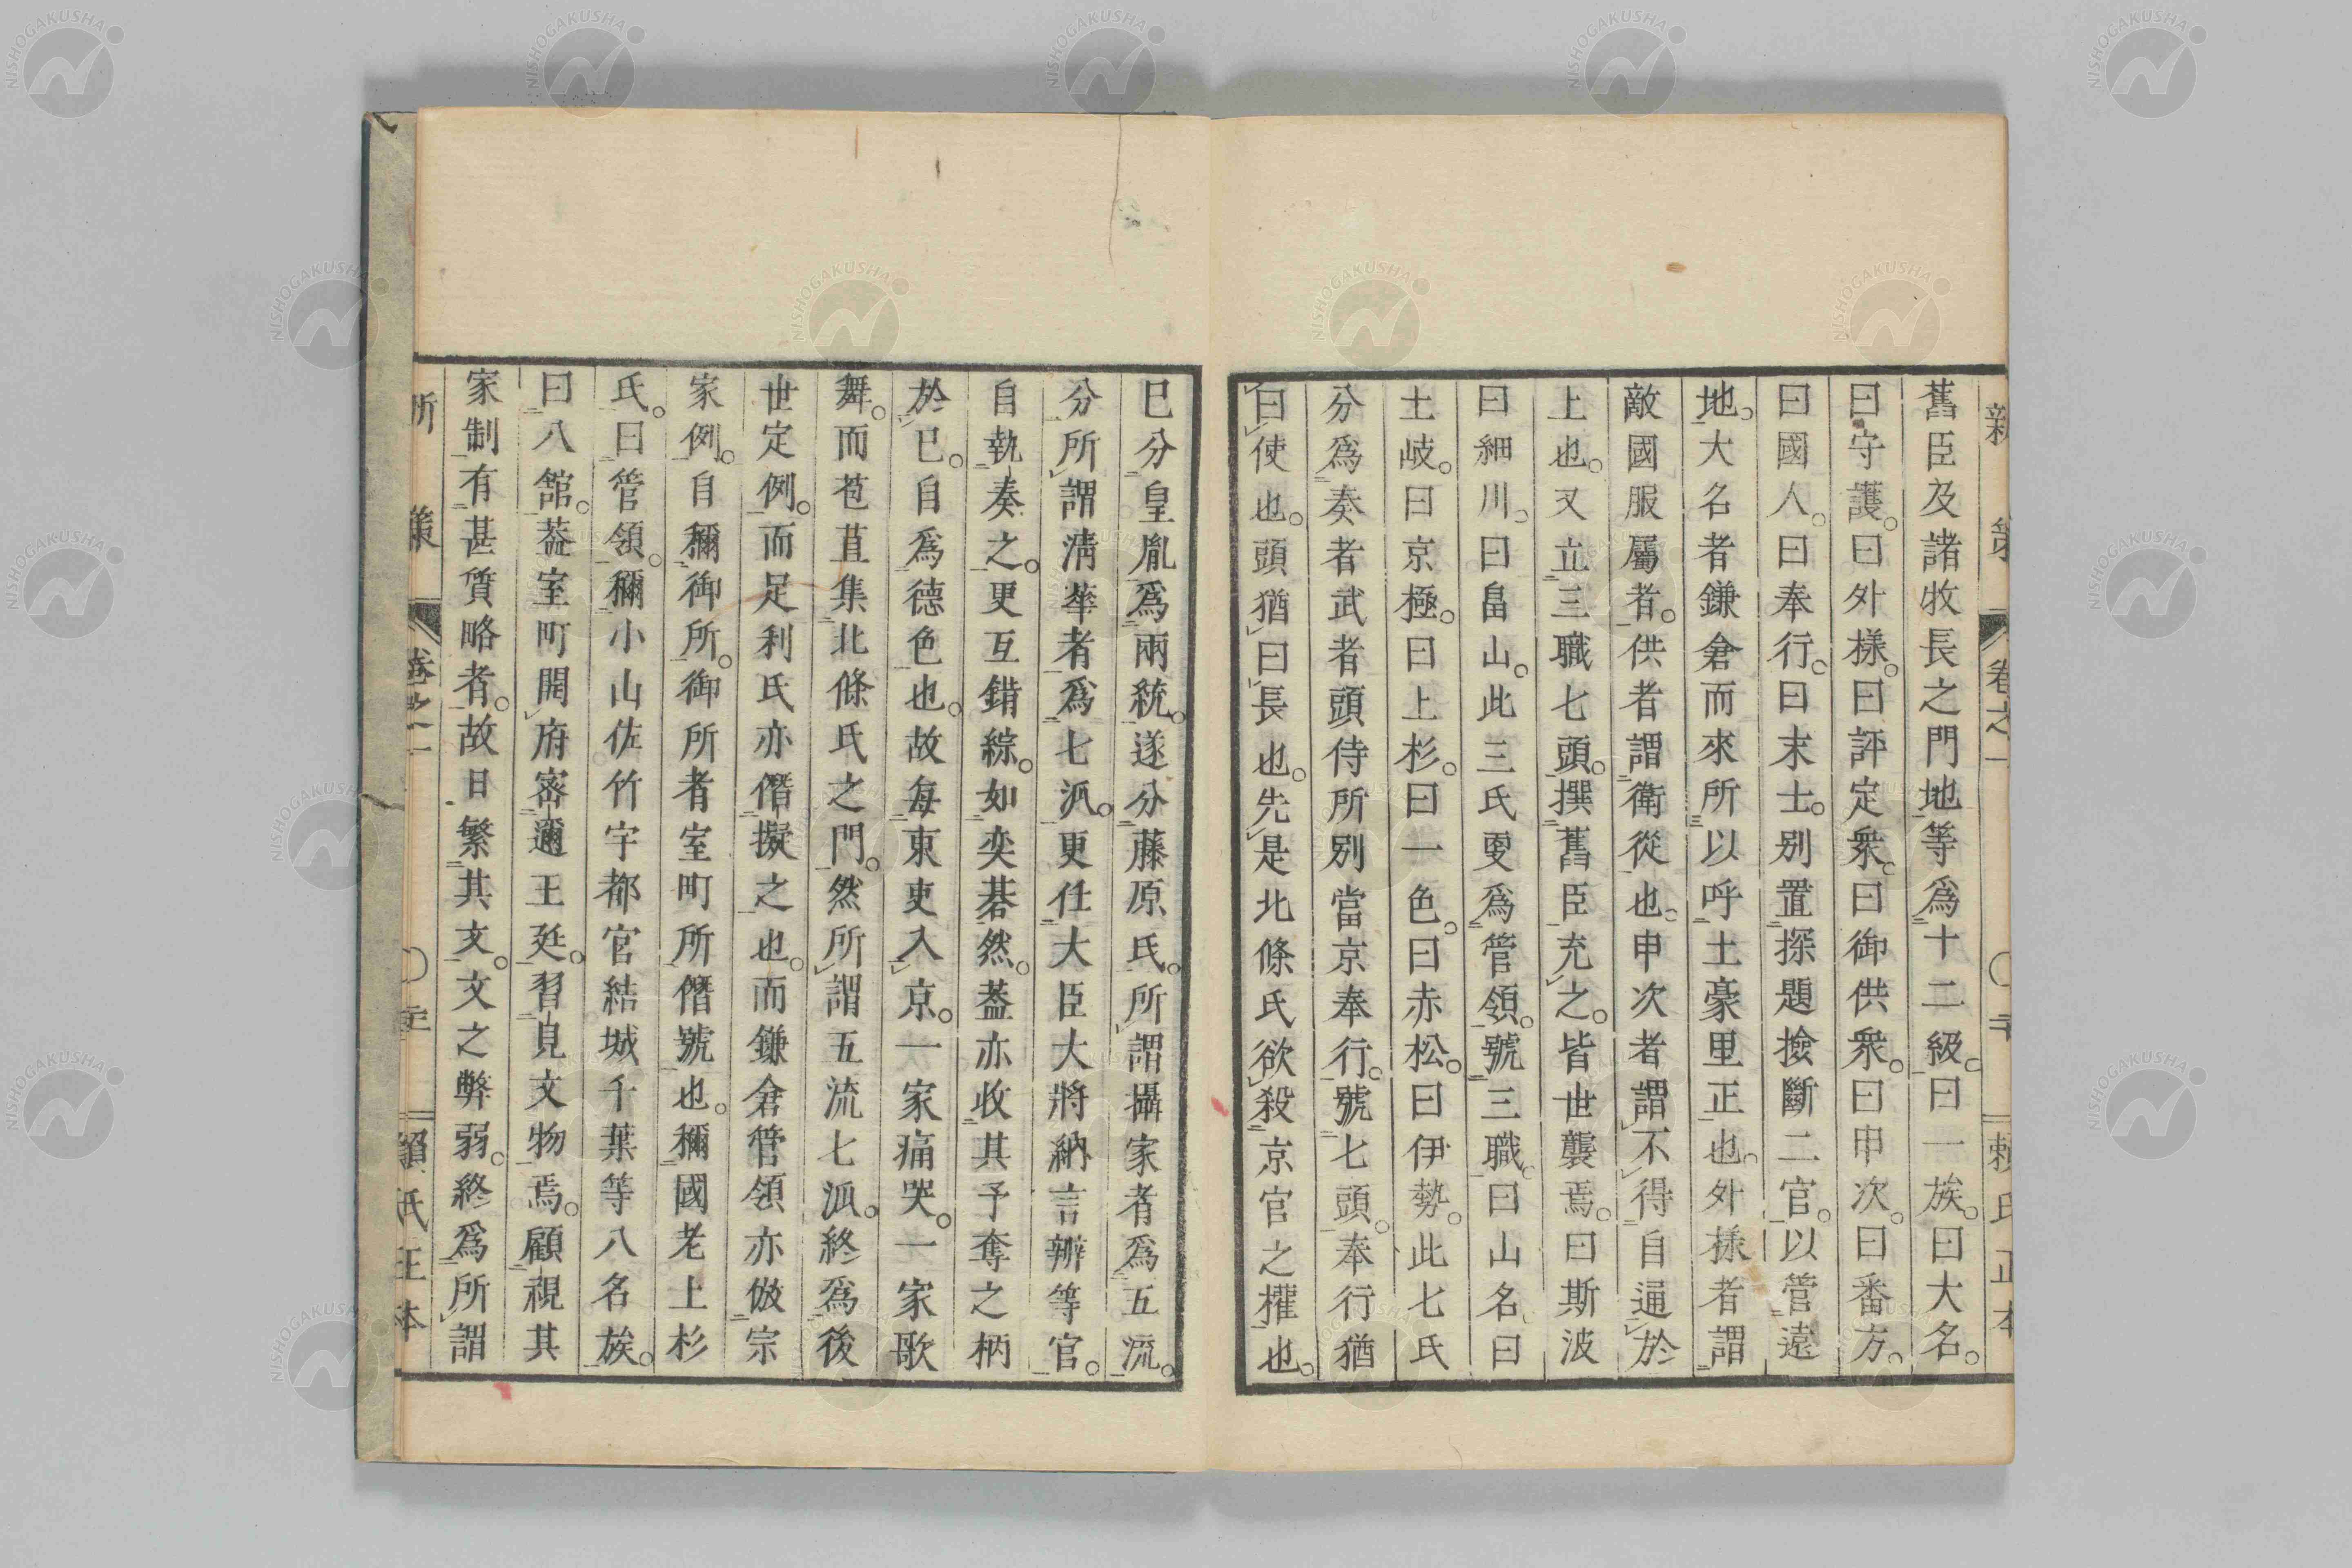 新策 卷之一 賴氏正本
舊臣及諸牧長之門地等爲十二級。曰一族。曰大名。
曰守護。曰外樣。曰評定衆。曰御供衆。曰申次。曰番方。
曰國人。曰奉行。曰末士。別置探題撿斷二官。以管遠
地。大名者鎌倉而來所以呼土豪里正也。外樣者謂
敵國服屬者。供者謂衛從也。申次者謂不得自通於
上也。又立三職七頭。撰舊臣充之。皆世襲焉。曰斯波
曰細川。曰畠山。此三氏更爲管領。號三職。曰山名。曰
土岐。曰京極。曰上杉。曰一色。曰赤松。曰伊勢。此七氏
分爲奏者武者頭侍所別當京奉行。號七頭。奉行猶
曰使也。頭猶曰長也。先是北條氏欲殺京官之權也。
已分皇胤爲兩統。遂分藤原氏。所謂攝家者爲五流。
分所謂淸華者爲七派。更任大臣大將納言辨等官。
自執奏之。更互錯綜。如奕碁然。蓋亦收其予奪之柄
於已。自爲德色也。故每東吏入京。一家痛哭。一家歌
舞。而苞苴集北條氏之門。然所謂五流七派。終爲後
世定例。而足利氏亦僭擬之也。而鎌倉管領亦倣宗
家例。自稱御所。御所者室町所僭號也。稱國老上杉
氏。曰管領。稱小山佐竹宇都宮結城千葉等八名族。
曰八舘。葢室町開府密邇王廷。習見文物焉。顧視其
家制有甚質略者。故日繁其文。文之弊弱。終爲所謂
新策 卷之一 賴氏正本